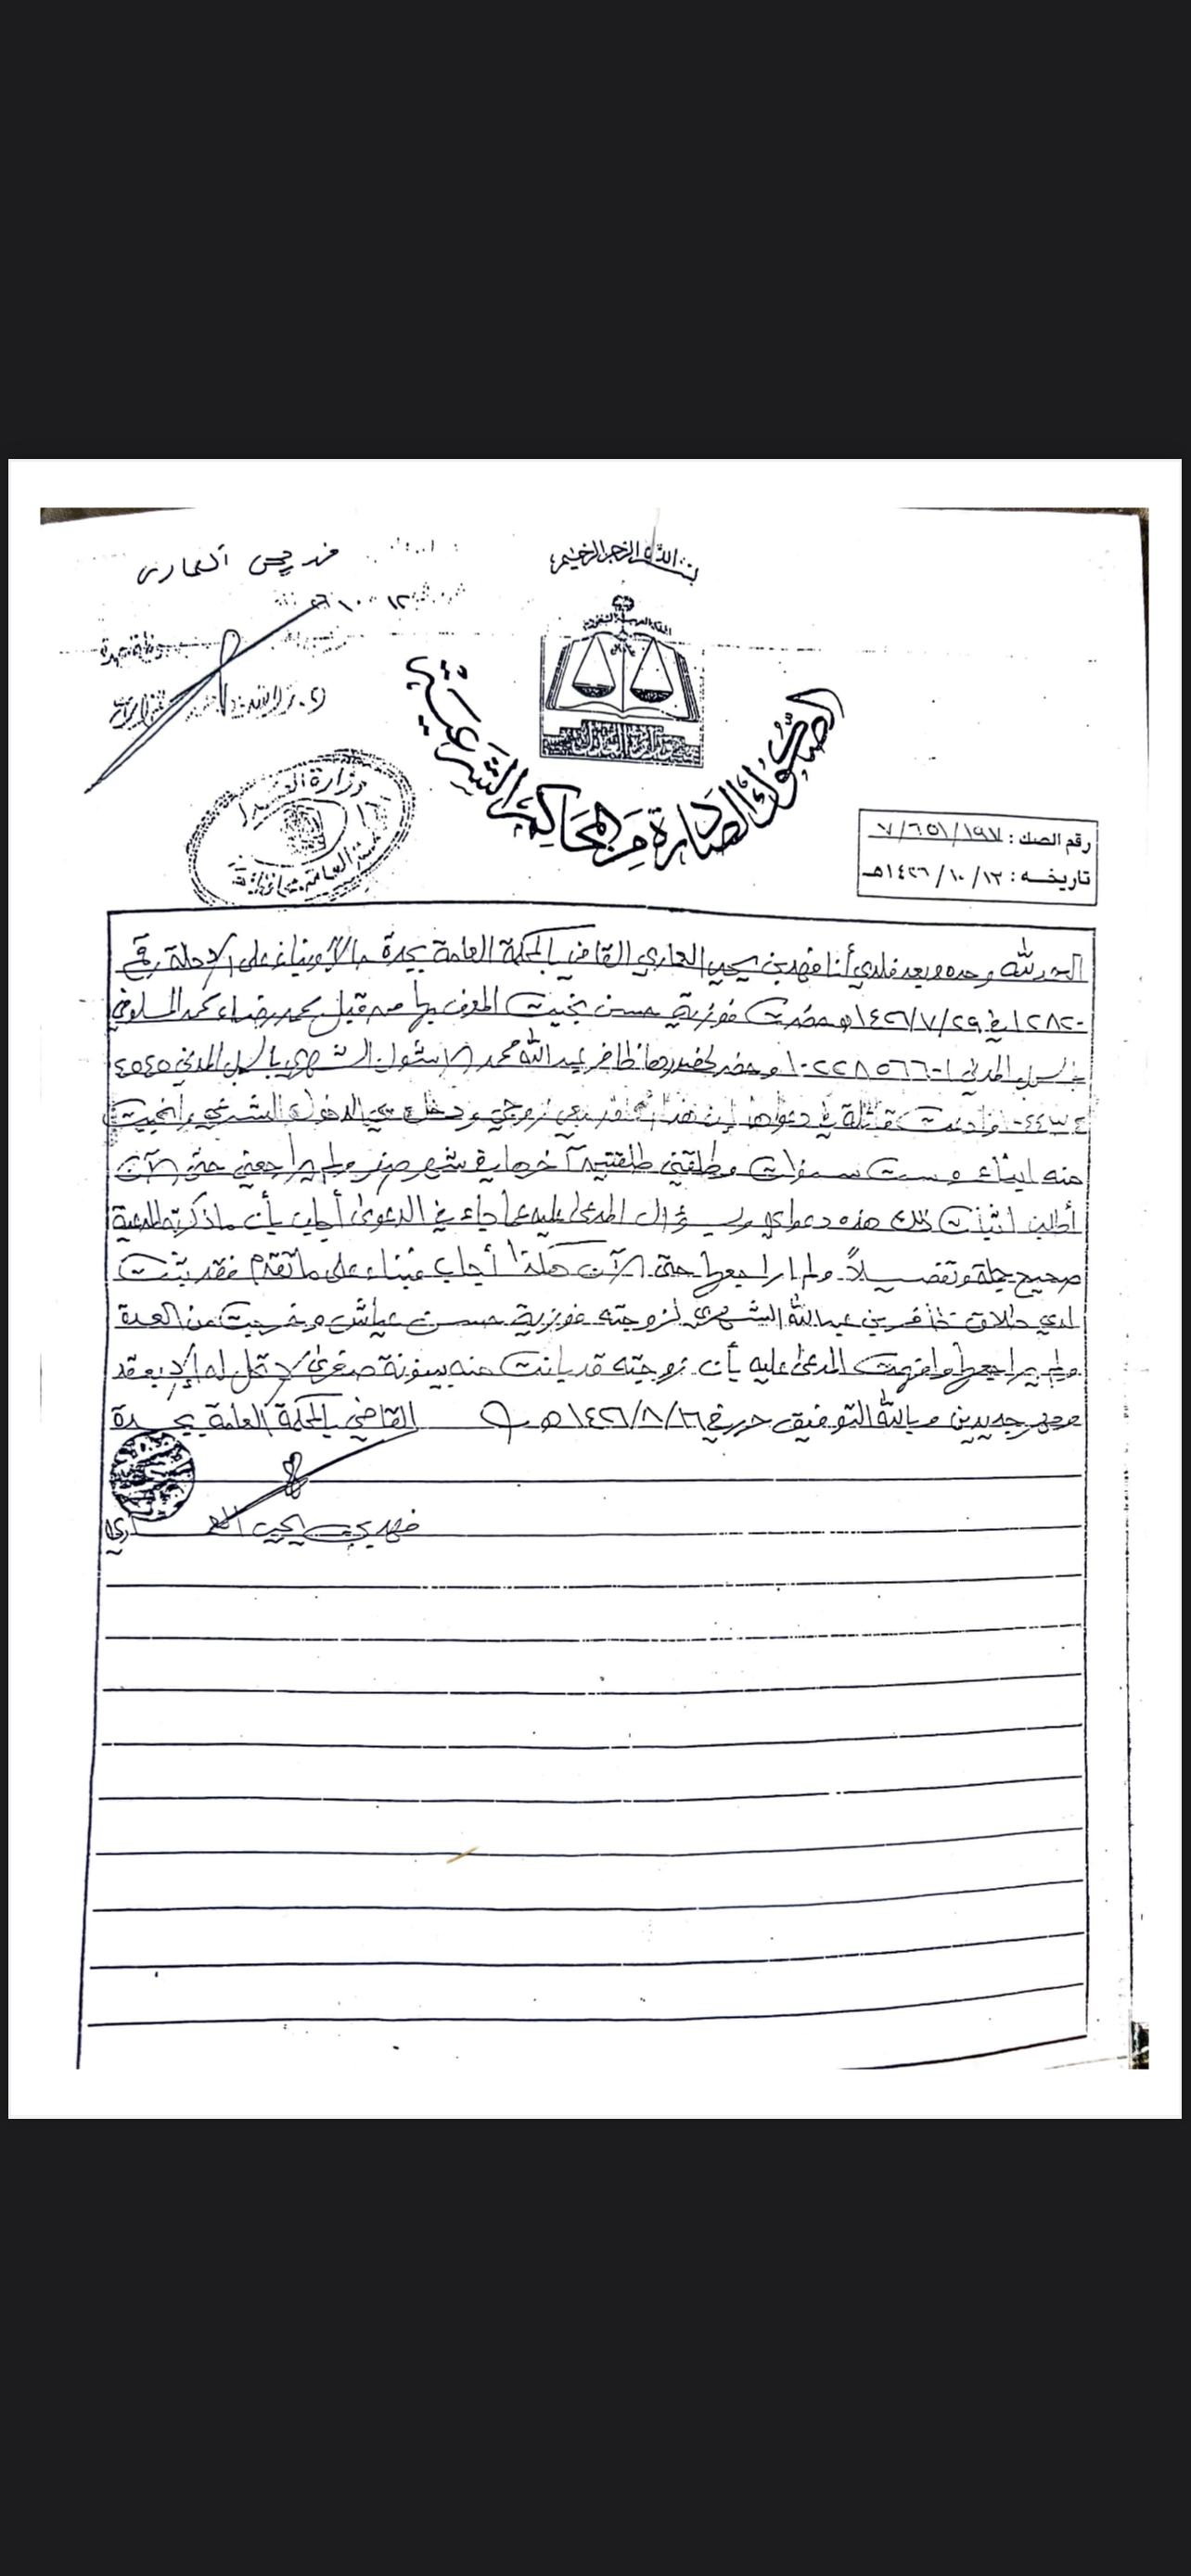 بسم الله الرحمن الرحيم
المملكة العربية السعودية
وزارة العدل
الصكوك الصادرة من المحاكم الشرعية
رقم الصك : ٧/٦٥١/١٩٧
تاريخه : ١٤٢٦/١٠/١٢هـ
الحمد لله وحده وبعد فلدي أنا فهد بن يحيى العماري القاضي بالمحكمة العامة بجدة وبناء على الإحالة رقم
١٢٨٢٠ في ١٤٢٦/٧/٢٩هـ حضرت فوزية حسن بخيت المعرف بها من قبل محمد رضاء محمد
بالسجل المدني ١٠٢٢٨٥٦٦-١ وحضر لحضورها ظافر عبد الله محمد الشهري بالسجل المدني
وادعت قائلة في دعواها إن هذا زوجي ودخل بي الدخول الشرعي وانجبت
منه ابناء وست سنوات وطلقني طلقتين آخرها في شهر صفر ولم يراجعني حتى الآن
أطلب اثبات ذلك هذه دعواي وبسؤال المدعى عليه عما جاء في الدعوى أجاب بأن ما ذكرته المدعية
صحيح جملة وتفصيلاً ولم اراجعها حتى الآن هكذا أجاب فبناء على ما تقدم فقد ثبت
لدي طلاق ظافر بن عبد الله الشهري لزوجته فوزية حسن عياش وخرجت من العدة
ولم يراجعها وافهمت المدعى عليه بأن زوجته قد بانت منه بينونة صغرى لا تحل له إلا بعقد
ومهر جديدين وبالله التوفيق حرر في ١٤٢٦/٨/٢٦هـ القاضي بالمحكمة العامة بجدة
فهد بن يحيى العماري